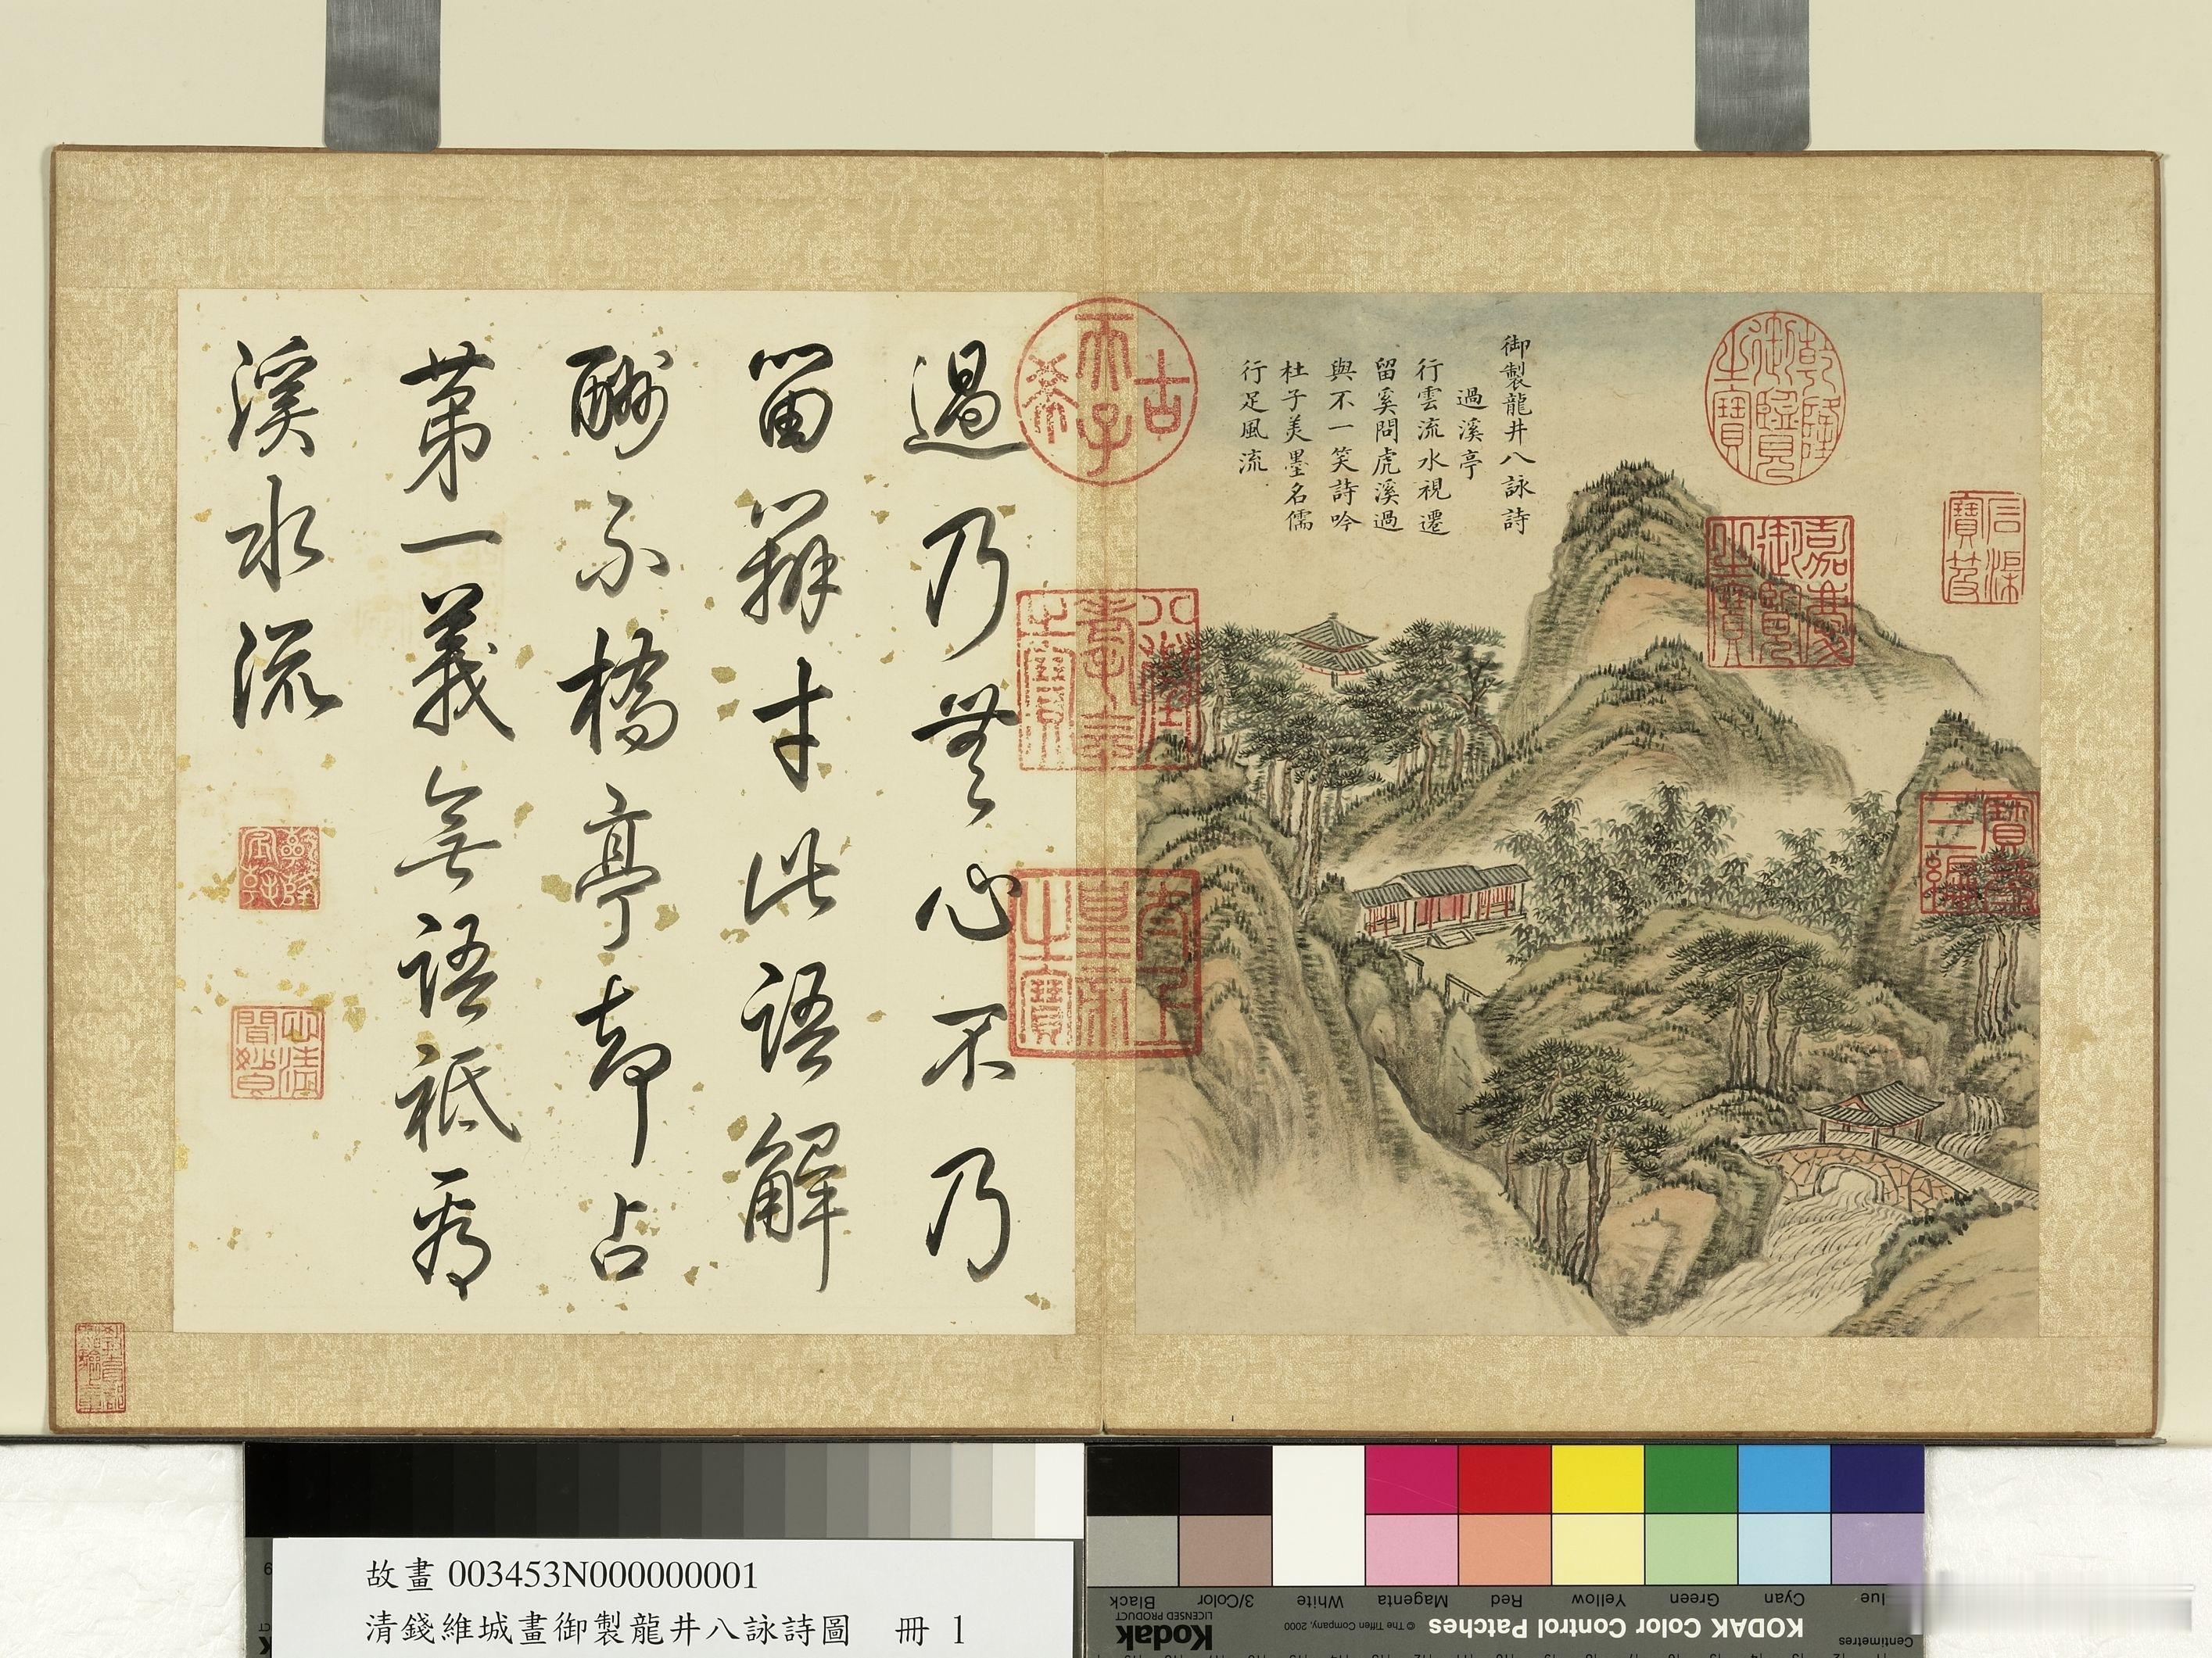 御製龍井八詠詩
過溪亭
行雲流水視遷
留溪問虎溪過
與不一笑詩吟
杜子美墨名儒
行足風流
乾隆御覽之寶
嘉慶御覽之寶
石渠寶笈
寶笈三編
古希天子
八徵耄念之寶
太上皇帝之寶
過乃無心不乃
留辨才此語解
酬不橋亭却占
第一義無語祗看
溪水流
乾隆宸翰
故畫 003453N000000001
清錢維城畫御製龍井八詠詩圖 冊 1
KODAK Color Control Patches
© The Tiffen Company, 2000
Kodak
LICENSED PRODUCT
Centimetres
Cyan
Green
Yellow
Red
Magenta
White
3/Color
Black